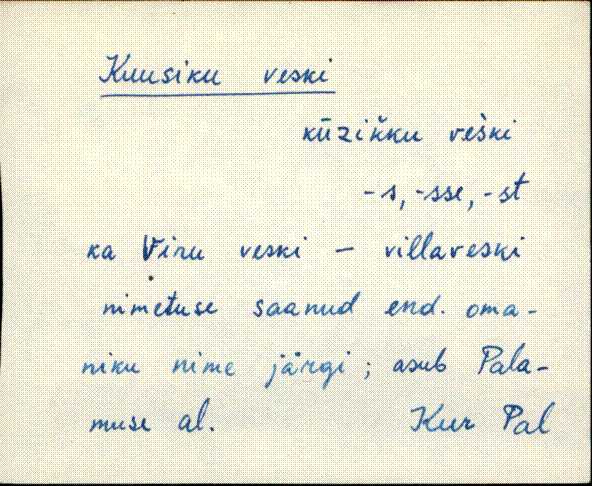 Kuusiku veski
kūzik̆ku vèški
-s, -sse, -st
ka Viru veski – villaveski
nimetuse saanud end. oma-
niku nime järgi; asub Pala-
muse al. Kur Pal